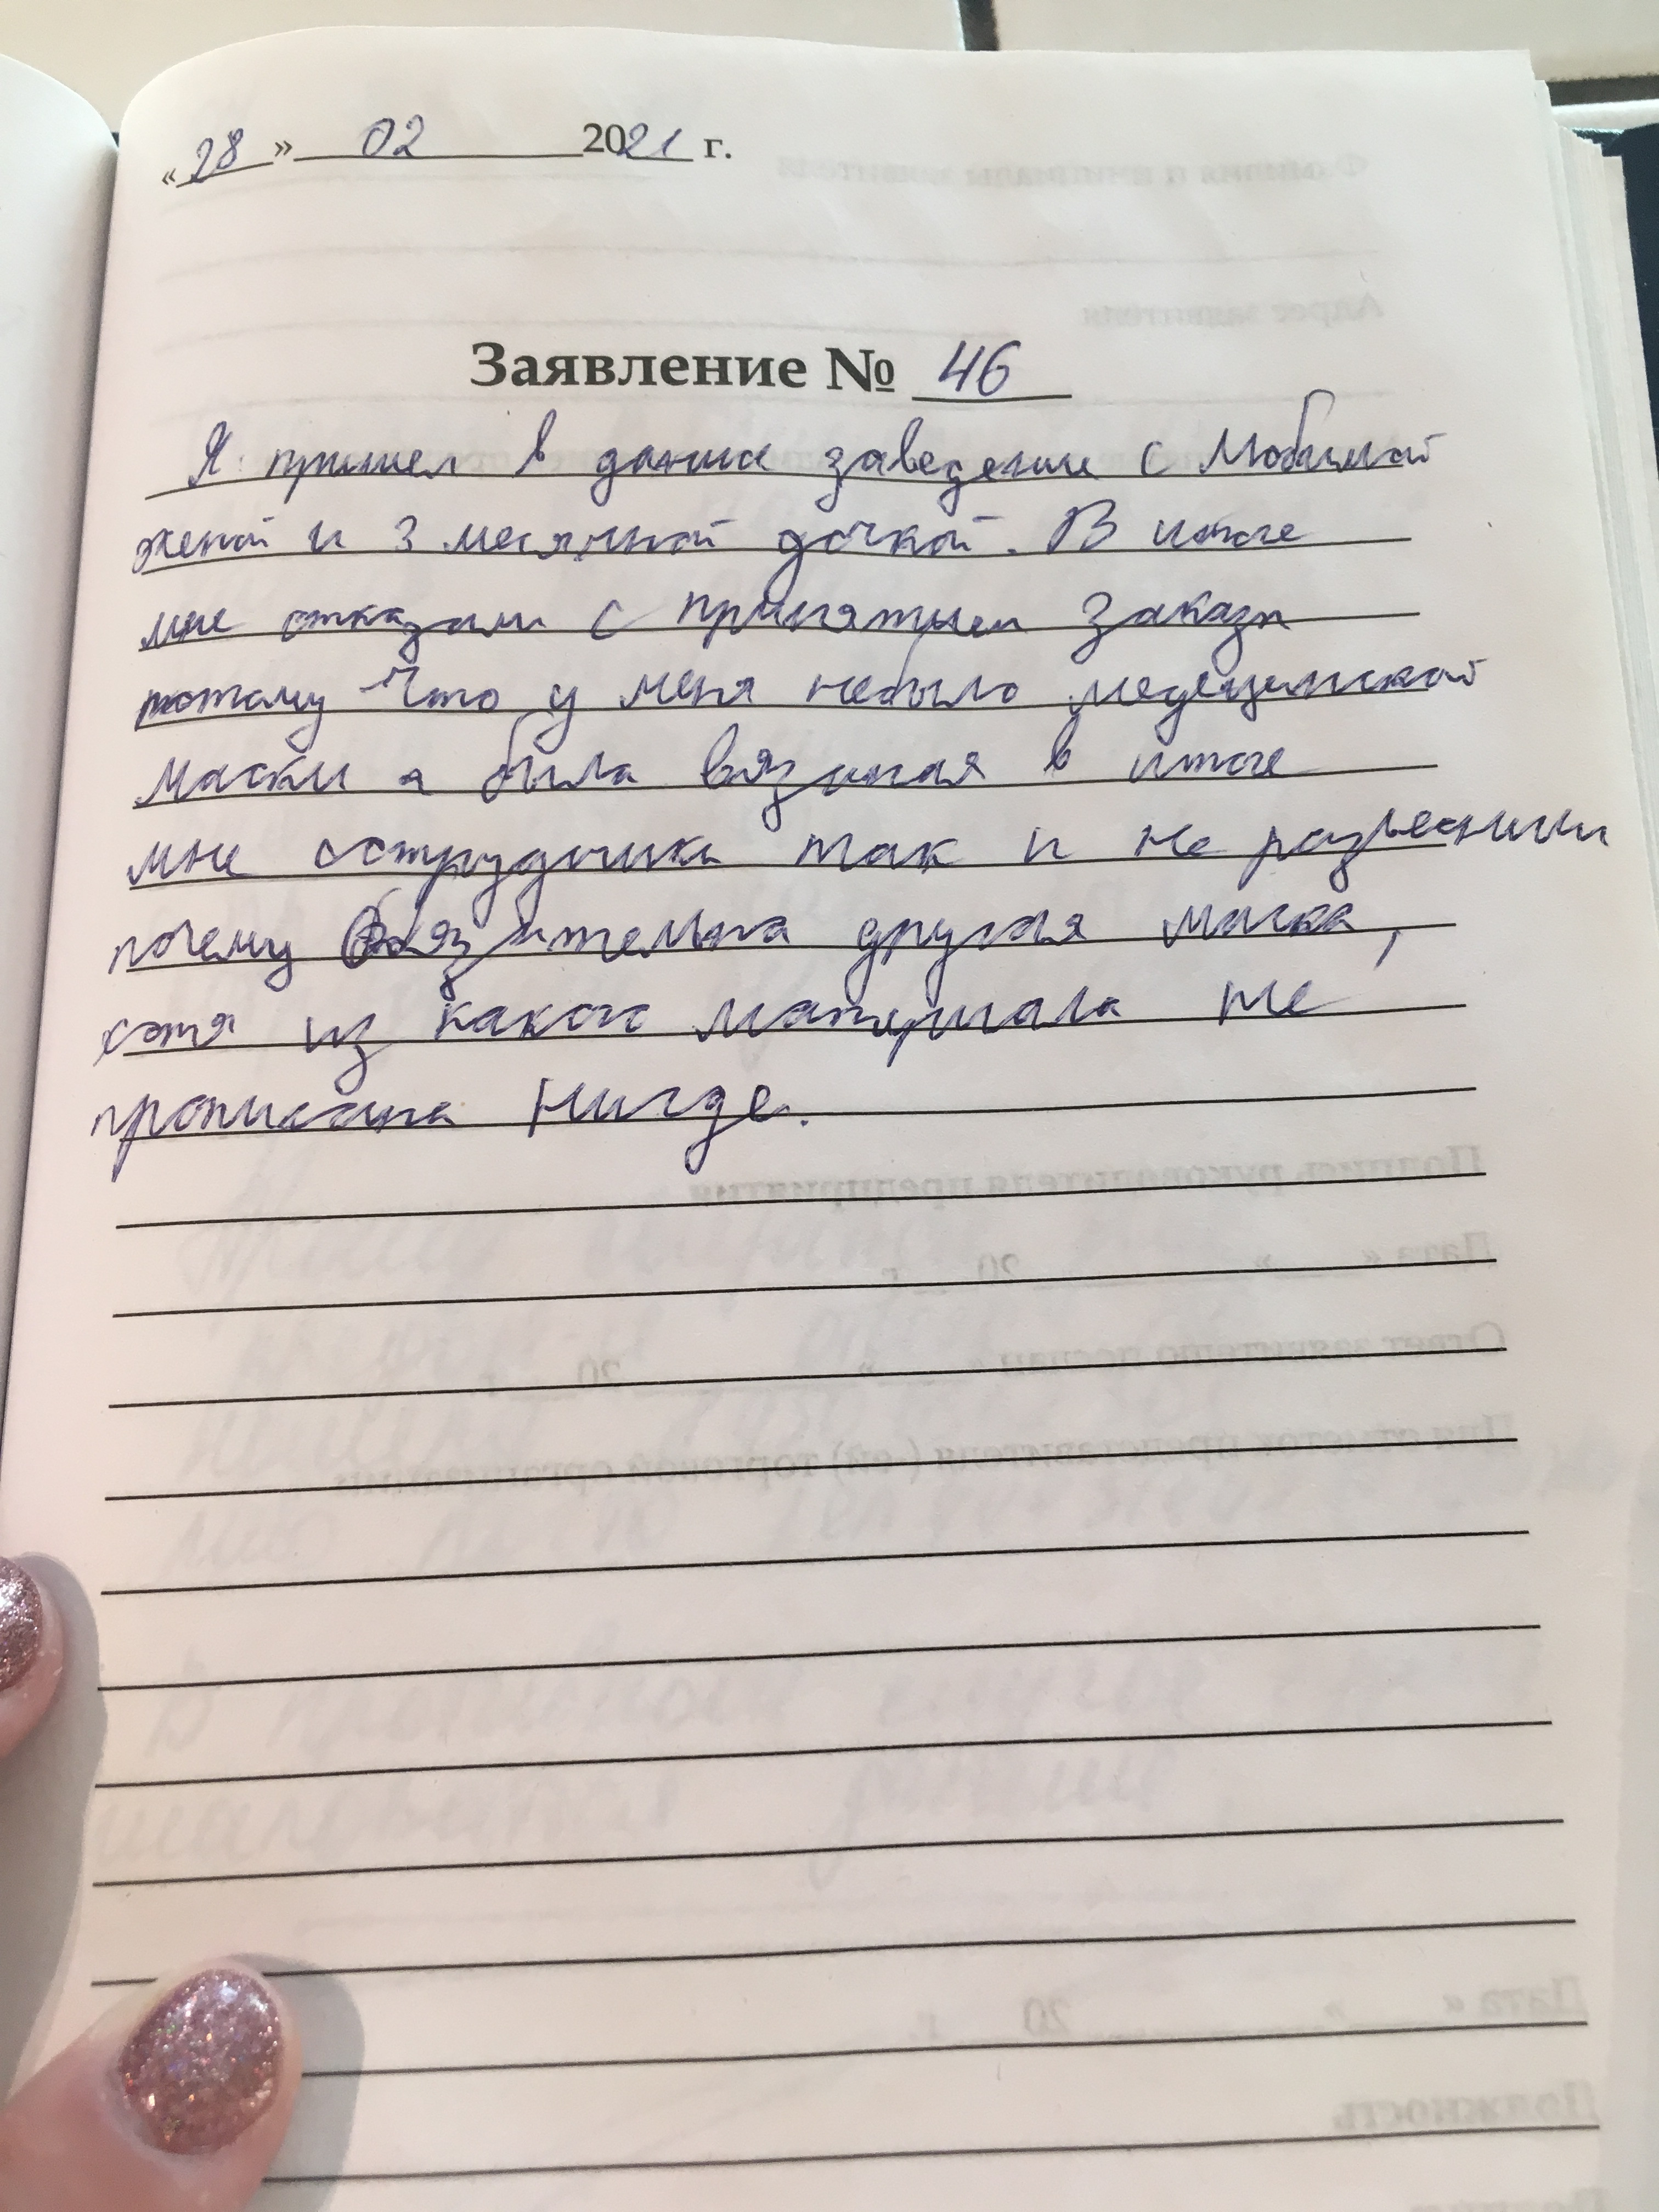 «28» 02 2021 г.
Заявление № 46
Я пришел в данное заведение с Любимой
женой и 3 месячной дочкой. В итоге
мне отказали с принятием Заказа
потому что у меня небыло медецинской
маски а была вязаная в итоге
мне сотрудники так и не разъеснили
почему Обязательна другая маска,
хотя из какого материала не
прописана нигде.